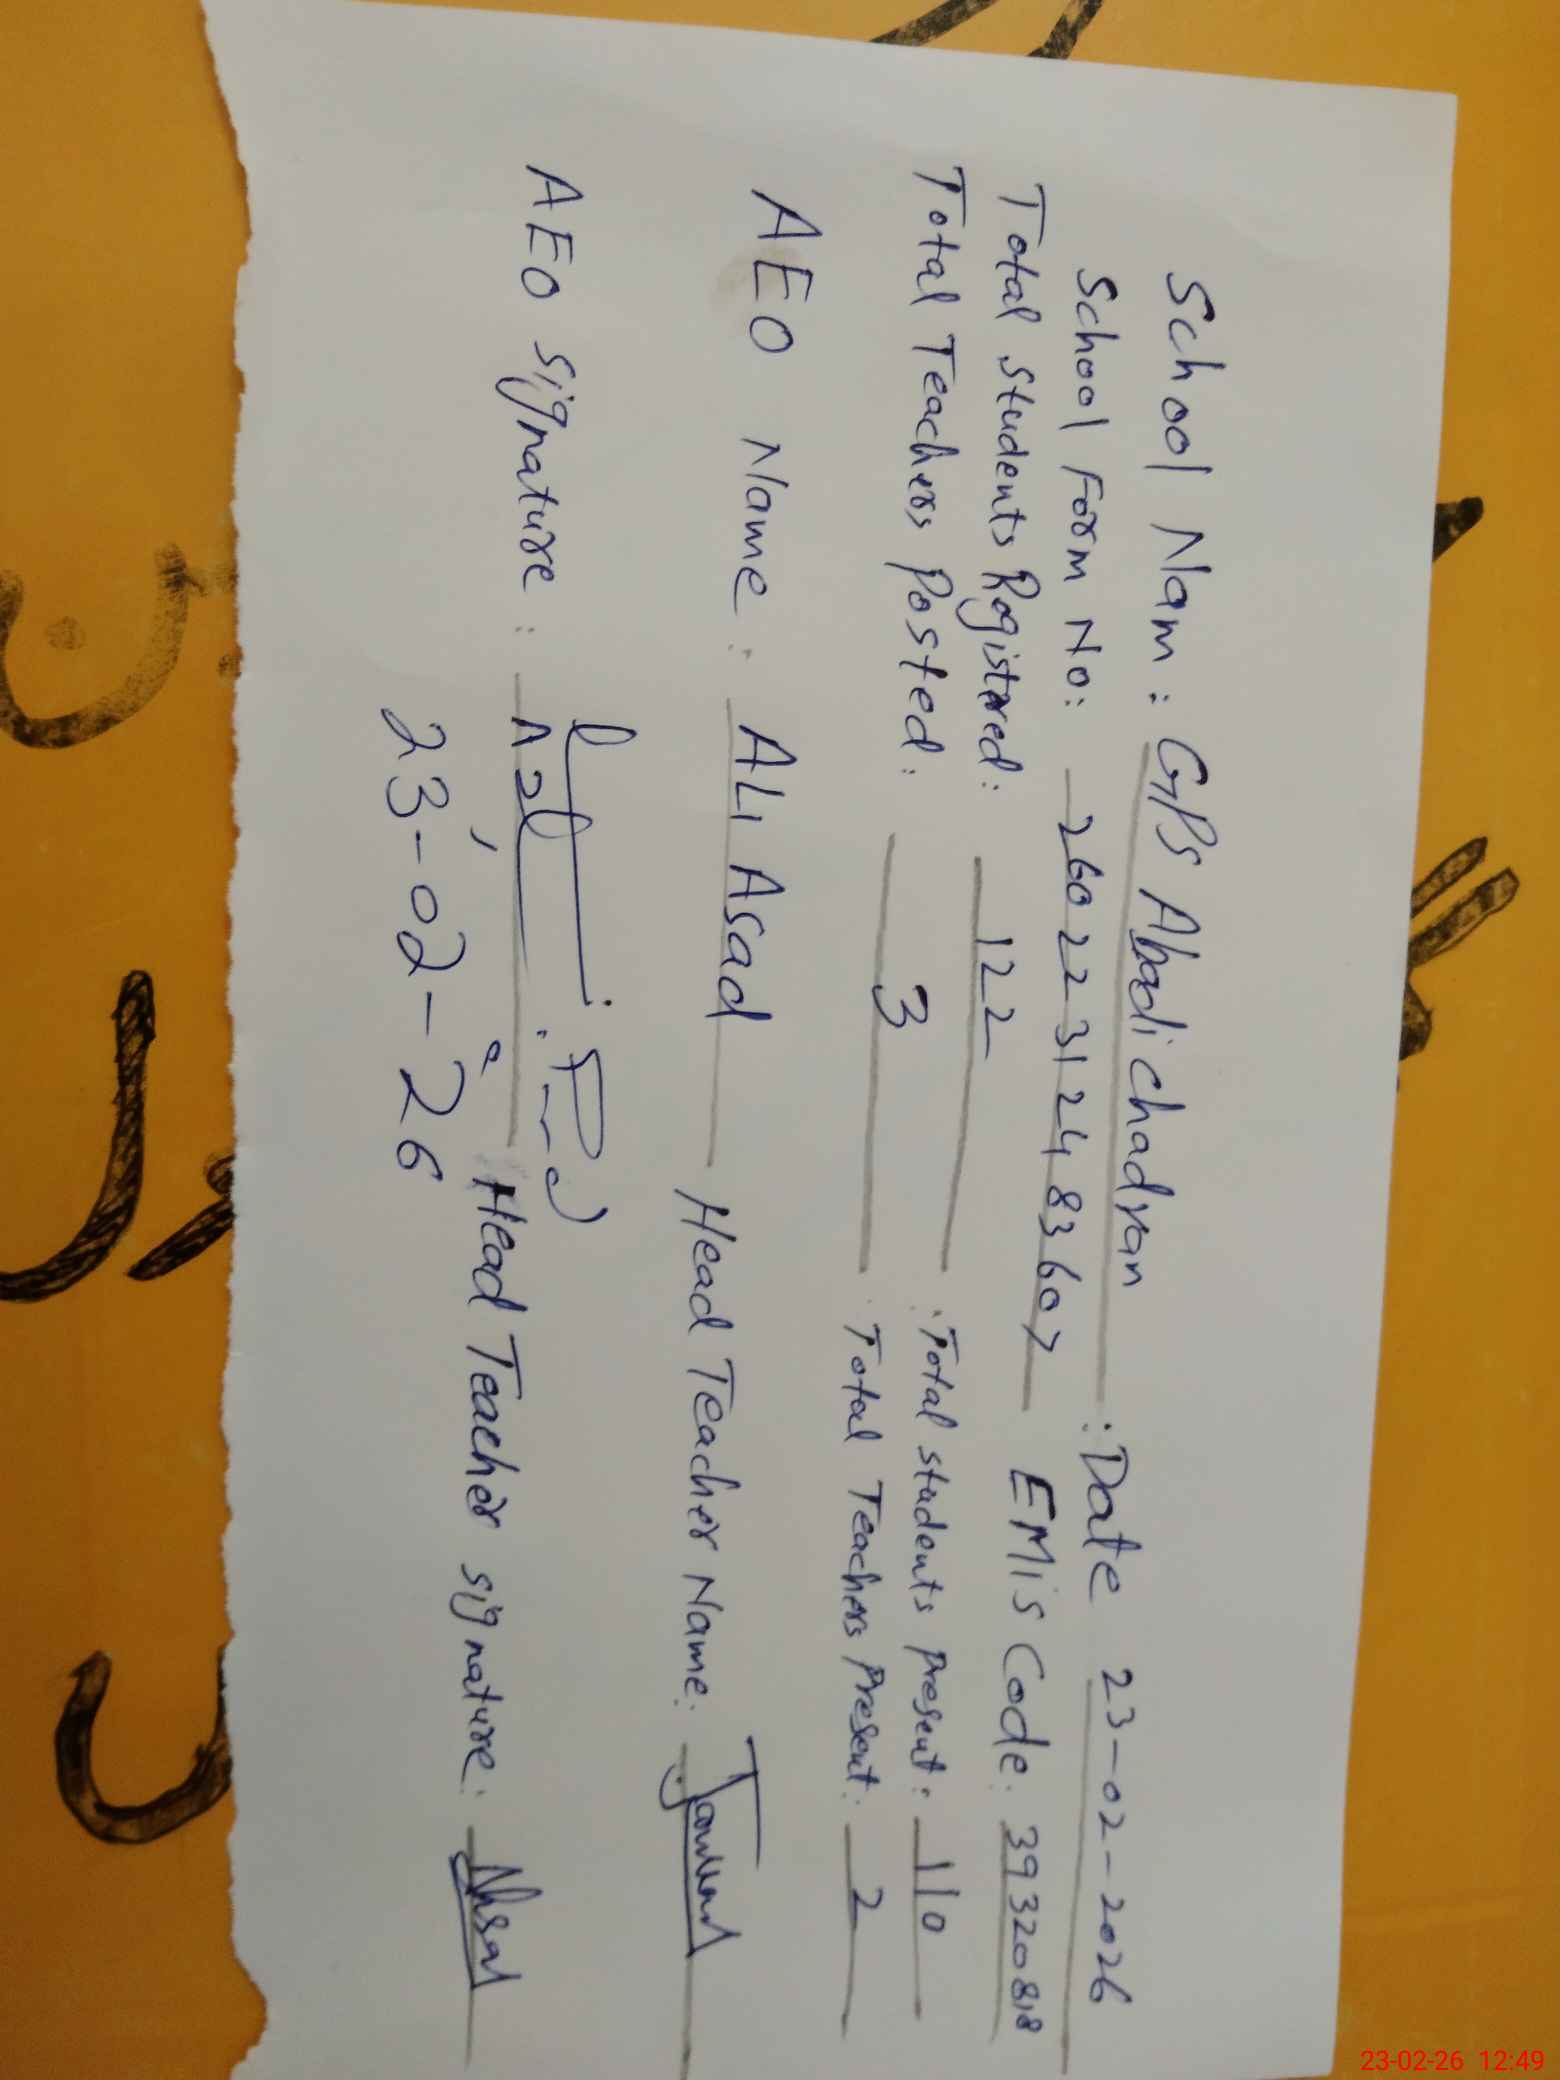 School Nam: GPS Abadi chadran : Date 23-02-2026
School Form No: 2602231248367 EMis Code: 39320818
Total Students Registred: 122 : Total students present: 110
Total Teachers Posted: 3 : Total Teachers Present: 2
AEO Name: ALI Asad Head Teacher Name:
AEO signature: Head Teacher signature:
23-02-26
23-02-26 12:49